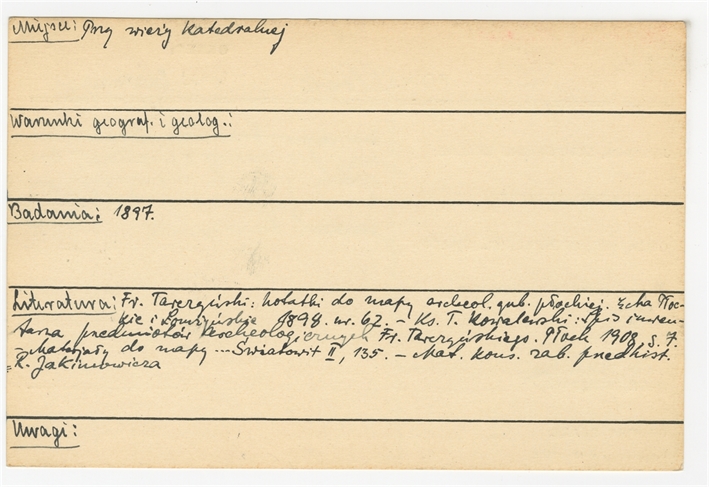 Miejsce: Przy wieży Katedralnej
Warunki geograf. i geolog.:
Badania: 1897.
Literatura: Fr. Tarczyński: Notatki do mapy archeol. gub. płockiej. Echa Płoc-
kie i Łomżyńskie 1898. nr. 62. – Ks. T. Kowalewski: Spis inwen-
tarza przedmiotów archeologicznych Fr. Tarczyńskiego. Płock 1908, s. 7.
– Materjały do mapy ... Światowit II, 135. – Mat. kons. zab. predhist.
R. Jakimowicza
Uwagi: